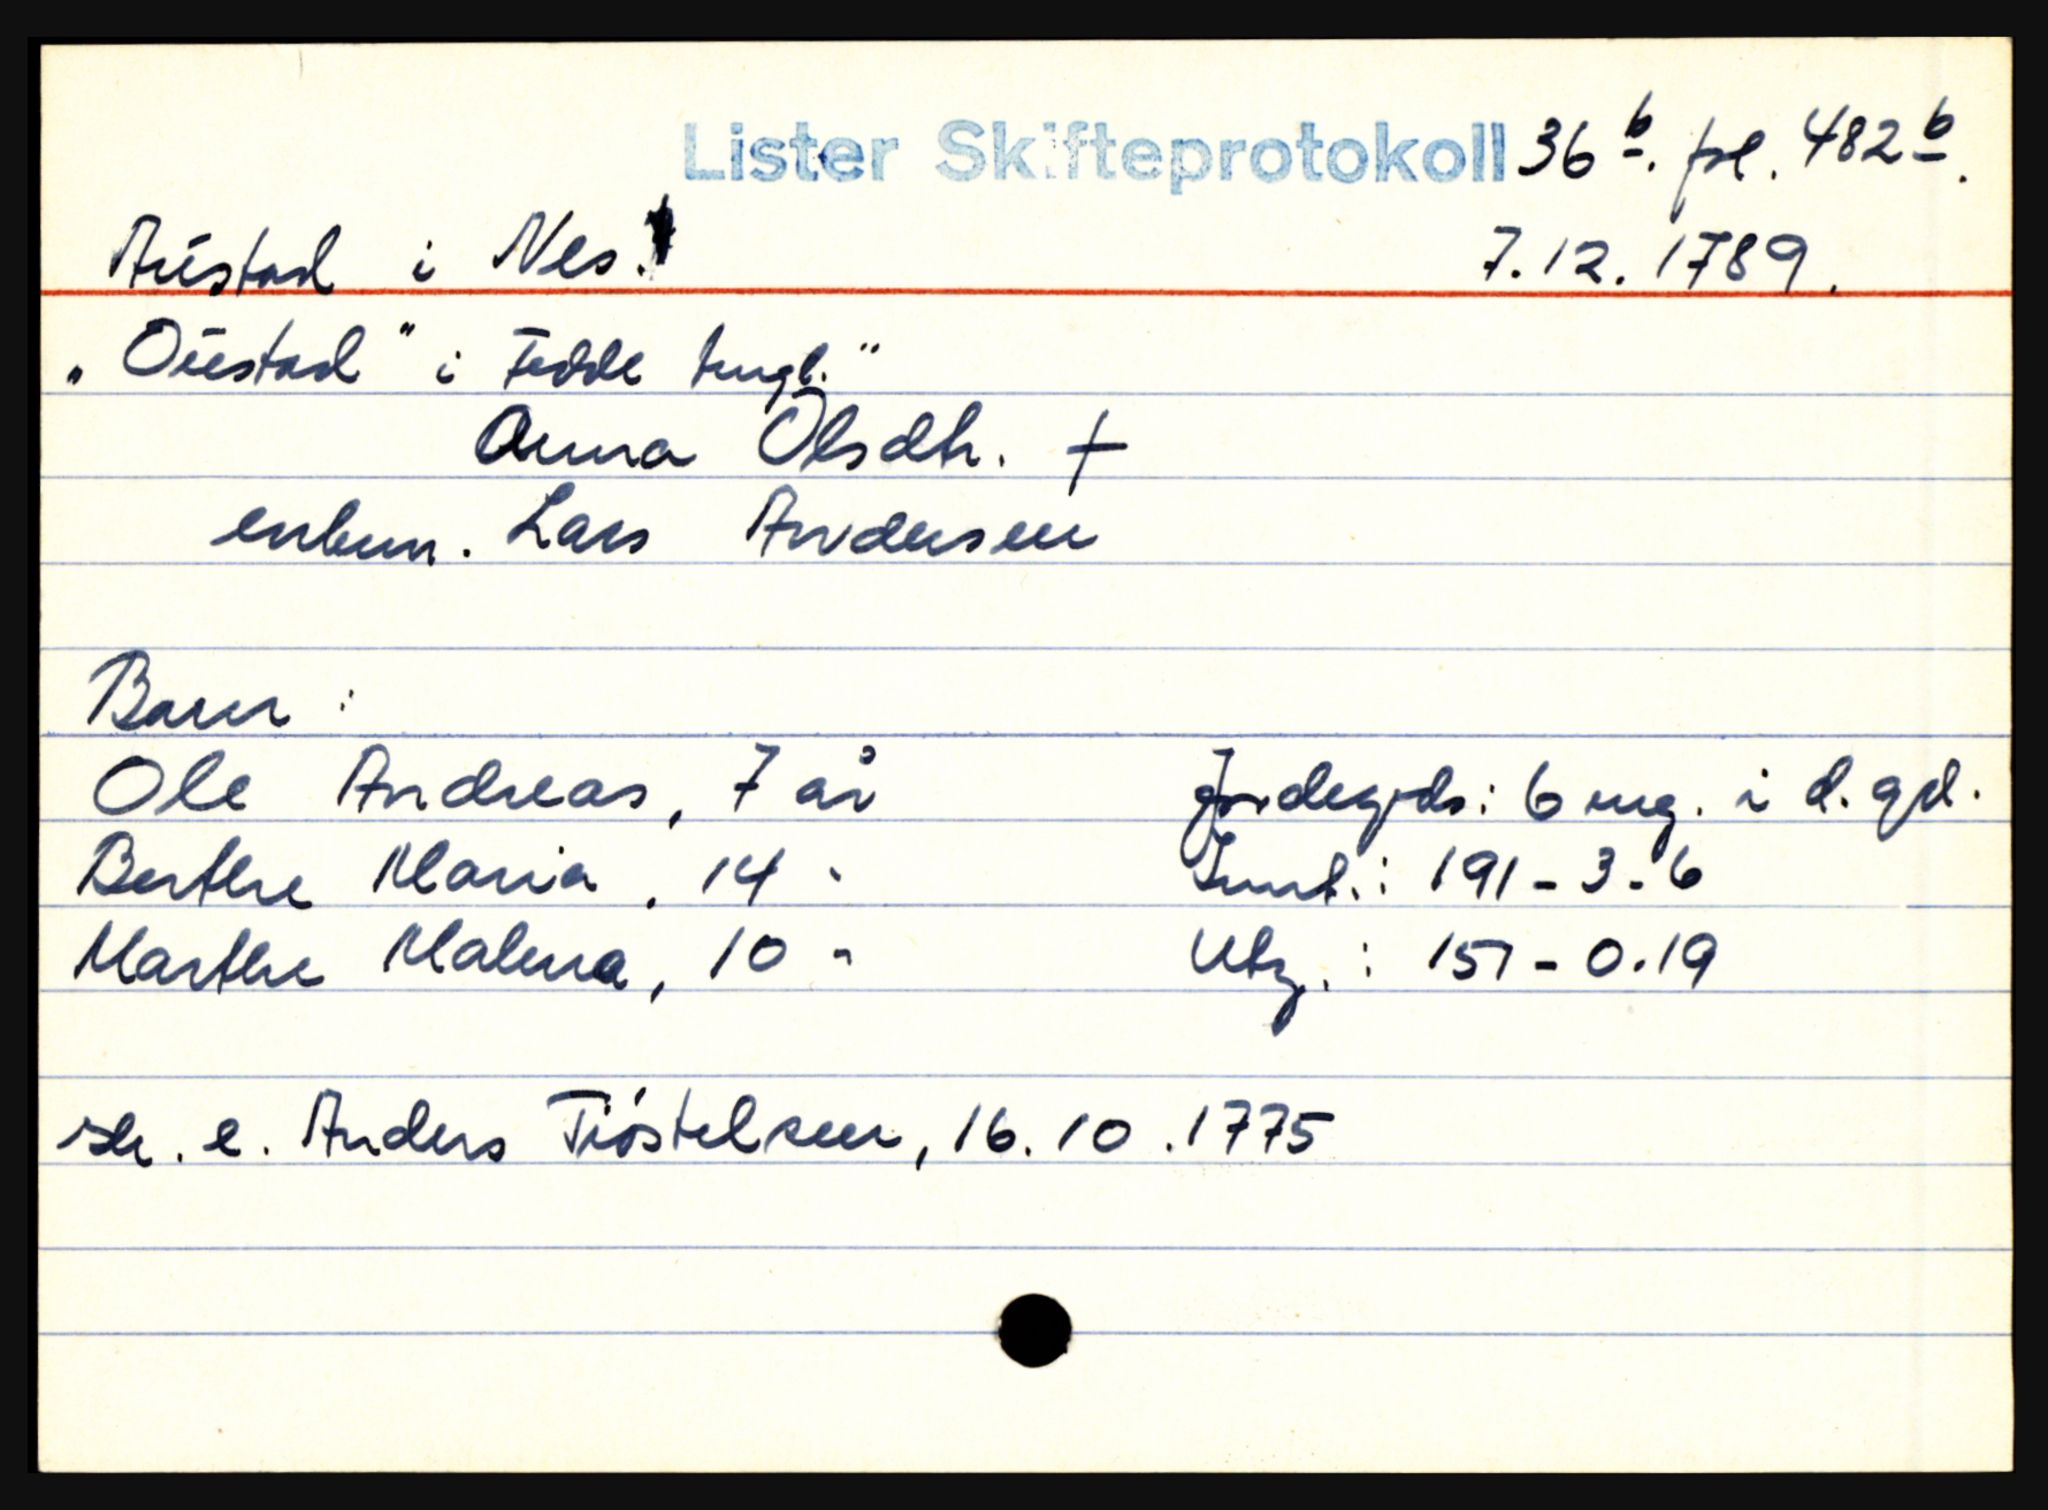 Lister Skifteprotokoll 36 b. fol. 482 b.
Austad i Nes. 7.12.1789.
"Oustad" i Fedde tingl."
Anna Olsdtr. †
enkem. Lars Andersen
Barn:
Ole Andreas, 7 år Jordegods: 6 mg. i d. gd.
Berthe Maria, 14 " Innt.: 191-3-6
Marthe Malena, 10 " Utg.: 157-0-19
sk. e. Anders Tiøstelsen, 16.10.1775